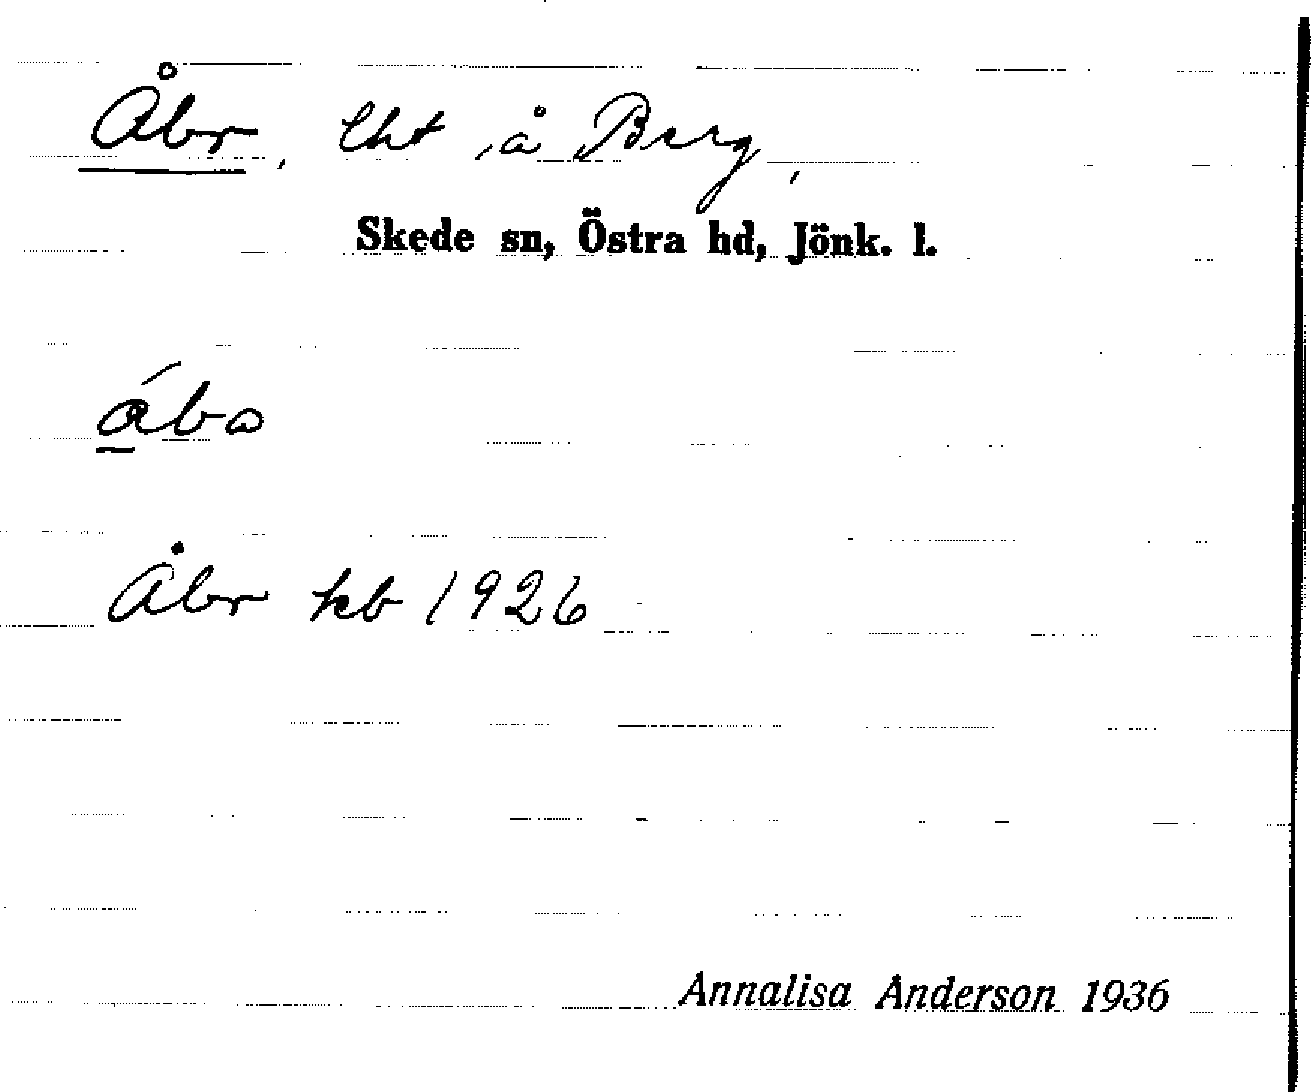 Åbr, lht å Berg,
Skede sn, Östra hd, Jönk. l.
åbo
Åbr kb 1926
Annalisa Anderson 1936